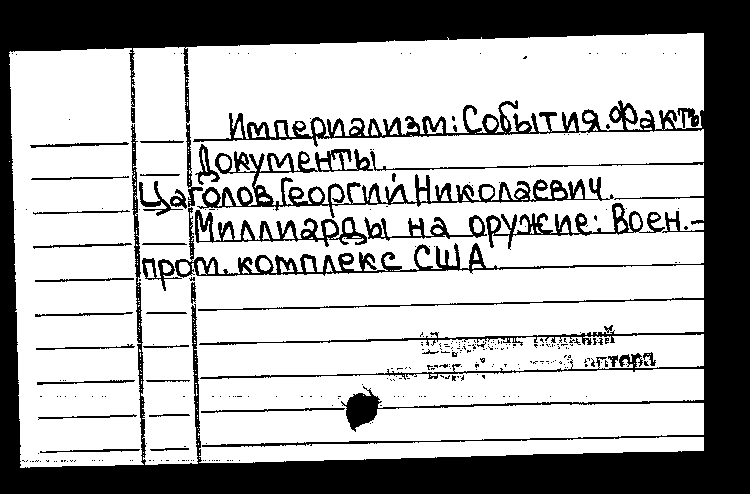 Империализм: События. Факты
Документы.
Цаголов, Георгий Николаевич.
Миллиарды на оружие: Воен.-
пром. комплекс США.
изданий
автора